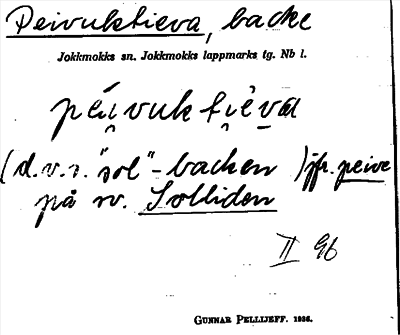 Peivuktieva, backe
Jokkmokks sn. Jokkmokks lappmarks tg. Nb l.
péi̯vukti̯èva
(d.v.s. "sol"-backen) jfr. peive
på sv. Solliden
II 96
GUNNAR PELLIJEFF. 1936.